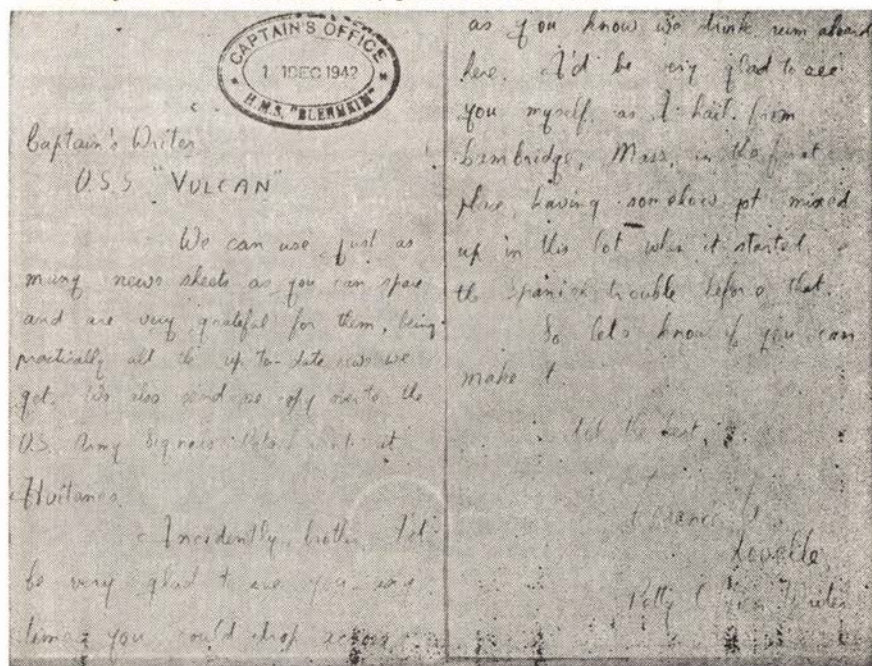 CAPTAIN'S OFFICE
1 1 DEC 1942
H.M.S. "BLENHEIM"
Captain's Writer
U.S.S "VULCAN"
We can use just as
many news sheets as you can spare
and are very grateful for them, being
practically all the up to-date news we
get. We also send one copy over to the
U.S. Army Signals at
Hvitanes
Incidently, brother, I'd
be very glad to see you any
time you could drop across,
as you know we drink rum aboard
here. I'd be very glad to see
you myself, as I hail from
Cambridge, Mass, in the first
place, having somehow got mixed
up in this lot when it started, &
the Spanish trouble before that.
So let's know if you can
make it.
All the best,
Lovelle,
Petty Writer